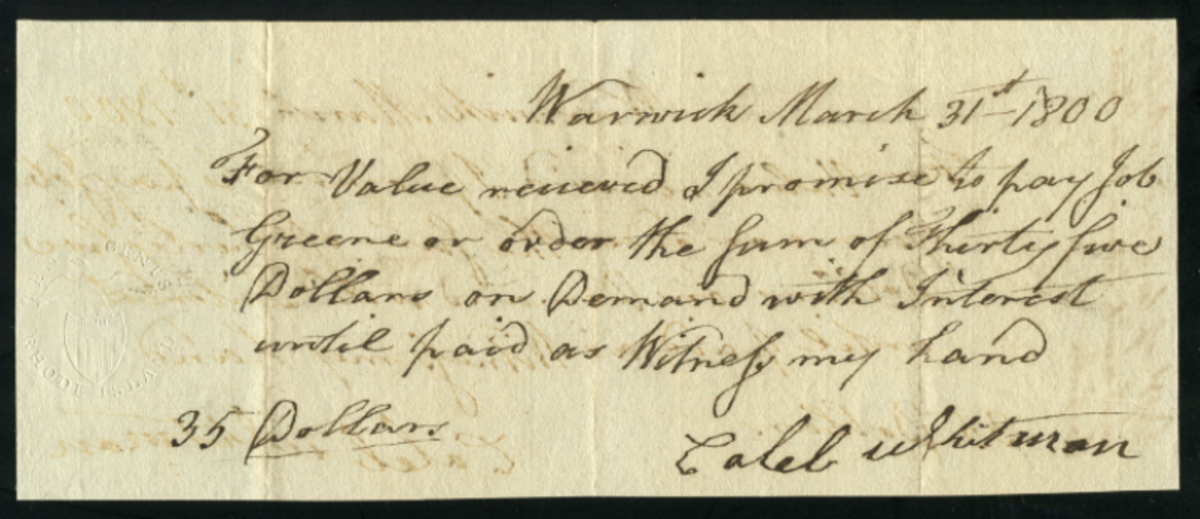 Warwick March 31st 1800
For Value received I promise to pay Job
Greene or order the sum of Thirty five
Dollars on Demand with Interest
until paid as Witness my hand
35 Dollars
Caleb Whitman
CENTS
RHODE ISLAND